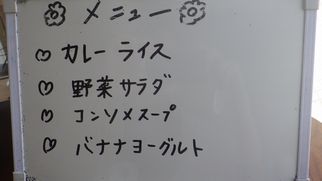 メニュー
カレーライス
野菜サラダ
コンソメスープ
バナナヨーグルト